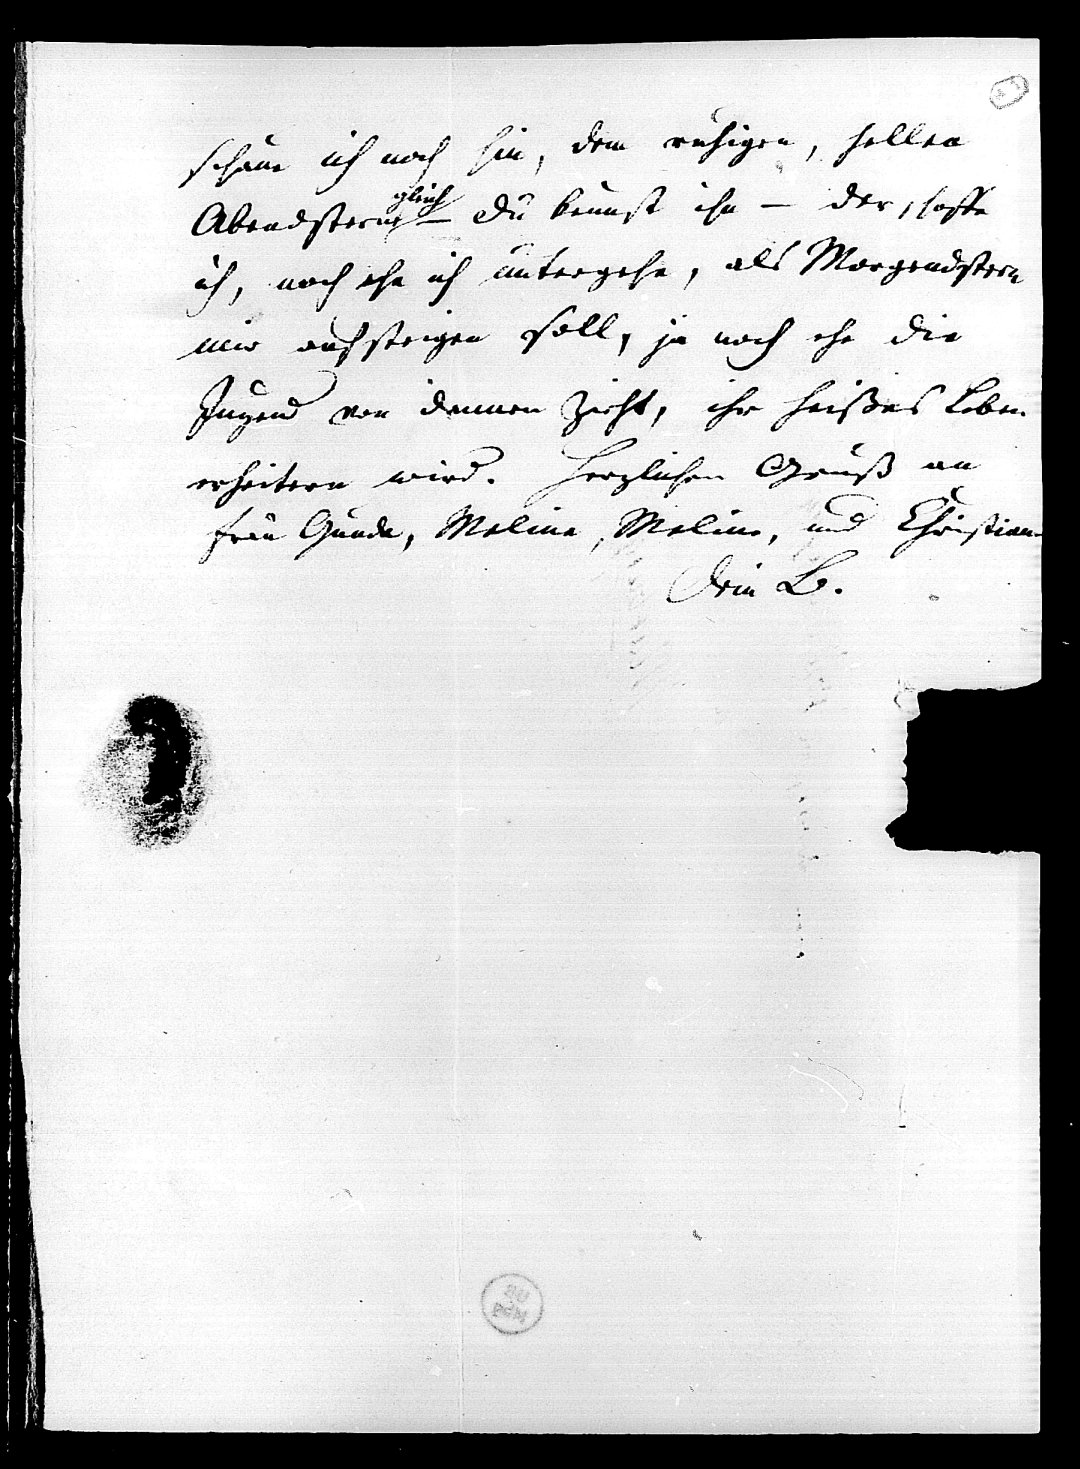 schaue ich noch hin, dem ruhigen, hellen
gleich
Abendstern – Du kennst ihn – der, hoffe
ich, noch ehe ich untergehe, als Morgendstern
mir aufsteigen soll, ja noch ehe die
Jugend von dannen zieht, ihr heißes Leben
erheitern wird. Herzlichen Gruß an
Frau Gunda, Meline, Meline, und Christian
Dein B.